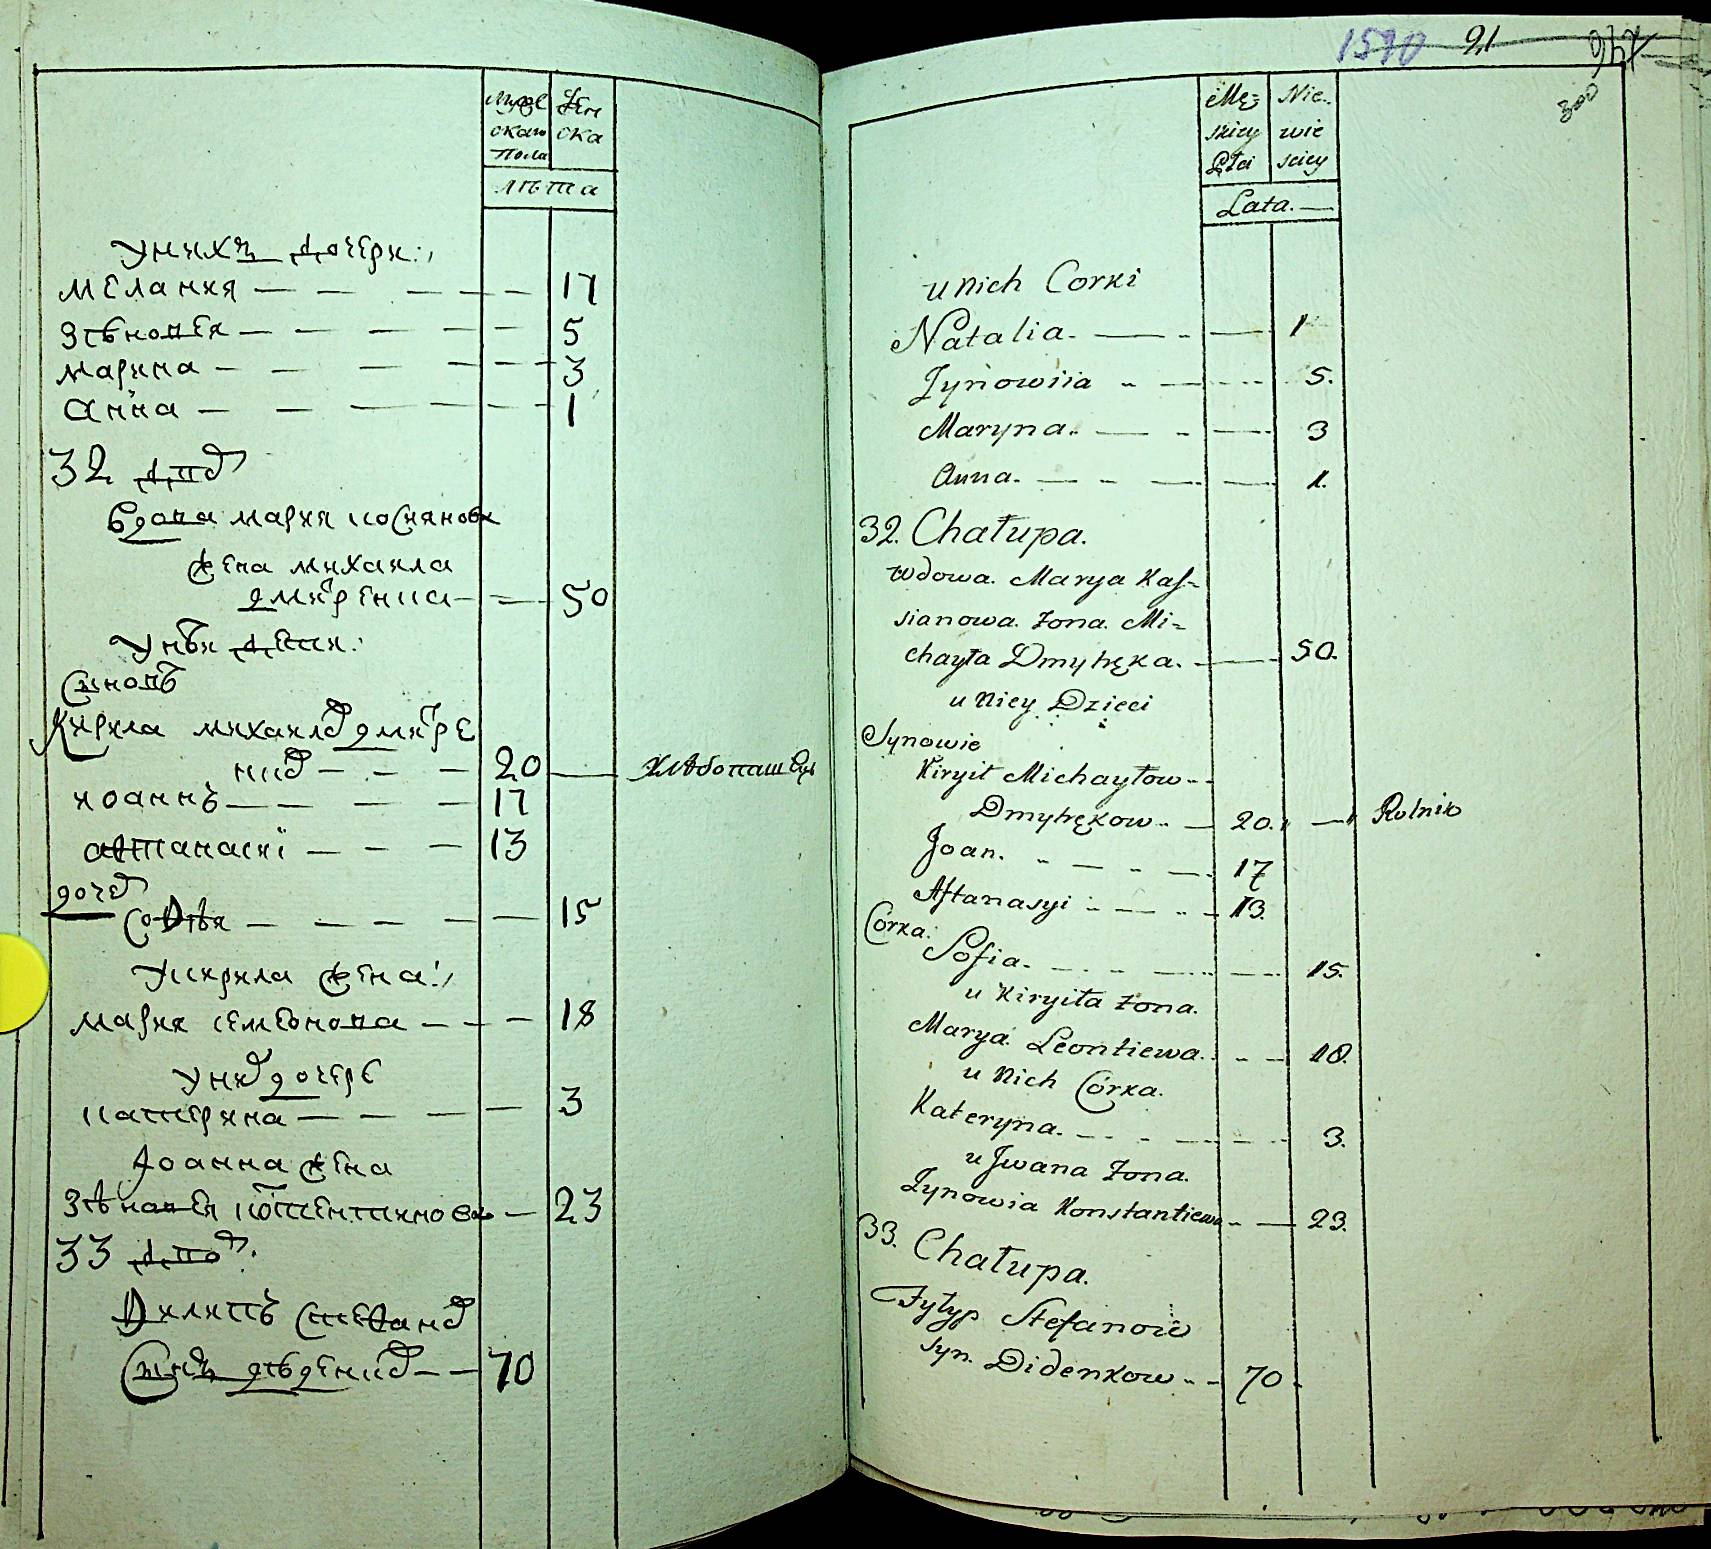 мужескаго пола
женска
лѣта
у нихъ дочери:
мелания — — — — — 17
зѣновея — — — — — 5
марина — — — — — 3
анна — — — — — 1
32 двор
вдова мария косиянова
жена михаила
дмитренка — — 50
у нея дети:
синовъ
Кирила михаилов дмитре
нков — — — 20 — хлѣбопашец
иоаннъ — — — 17
афтанасиї — — — 13
дочер
софѣя — — — — — 15
у кирила жена:
мария семеонова — — — 18
у них дочере
катерина — — — — — 3
Іоанна жена
зѣновея костентинова — 23
33 двор.
Филипъ стефанов
синъ дѣденков — — 70
1590 91
300
Mę=
skiey
Płci
Nie-
wie
sciey
Lata. —
u nich Corki
Natalia. — — 1
Zynowiia — — 5.
Maryna. — — 3
Anna. — — 1.
32. Chałupa.
wdowa. Marya Kas=
sianowa. żona. Mi=
chayła Dmytręka. — 50.
u niey Dzieci
Synowie
Kiryił Michayłow
Dmytrękow — 20. — Rolnik
Joan. — — 17
Aftanasyi — — 13.
Córka:
Sofia. — — 15.
u Kiryiła żona.
Marya Leontiewa. — 18.
u nich Córka.
Kateryna. — — 3.
u Jwana żona.
Zynowia Konstantiewa — 23.
33. Chałupa.
Fyłyp Stefanow
syn. Didenkow — 70